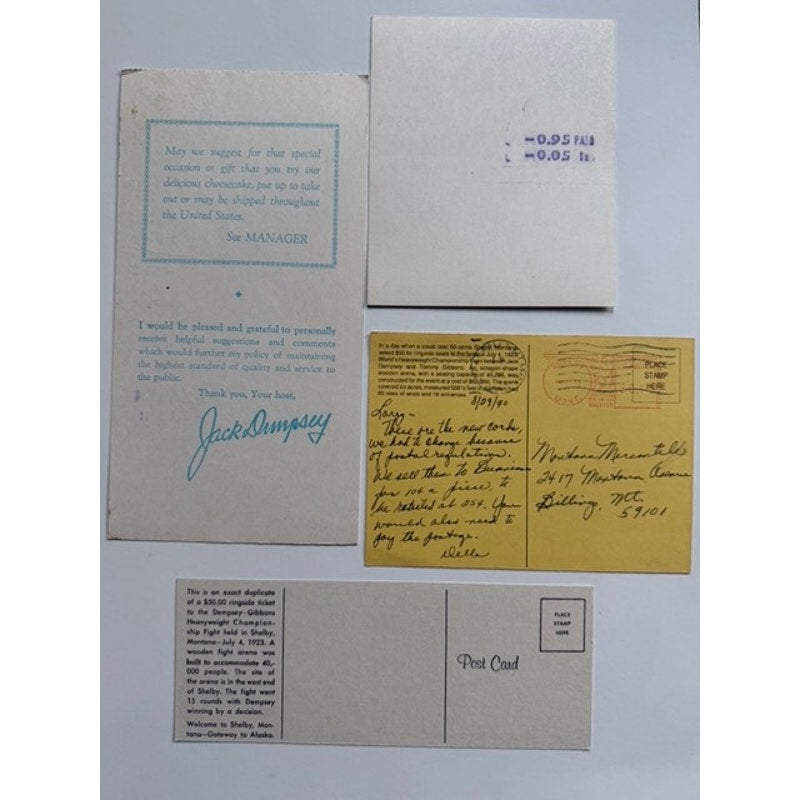 May we suggest for that special
occasion or gift that you try our
delicious cheesecake, put up to take
out or may be shipped throughout
the United States.
See MANAGER
I would be pleased and grateful to personally
receive helpful suggestions and comments
which would further my policy of maintaining
the highest standard of quality and service to
the public.
Thank you, Your host,
Jack Dempsey
-0.95 PAID
-0.05
In a day when a steak cost 50-cents Shelby, Montana
asked $50 for ringside seats to the famous July 4, 1923,
World's Heavyweight Championship fight between Jack
Dempsey and Tommy Gibbons. An octagon-shape
wooden arena, with a seating capacity of 40,208, was
constructed for the event at a cost of
covered six acres, measured
85 rows of seats and 16 entrances.
8/29/90
Larry-
These are the new cards,
we had to change because
of postal regulations.
We sell them to Businesses
for 10¢ a piece, to
be retailed at 25¢. You
would also need to
pay the postage.
Della
PLACE
STAMP
HERE
MONT.
Montana Mercantile
2417 Montana Avenue
Billings, Mt.
59101
This is an exact duplicate
of a $50.00 ringside ticket
to the Dempsey-Gibbons
Heavyweight Champion-
ship Fight held in Shelby,
Montana—July 4, 1923. A
wooden fight arena was
built to accommodate 40,-
000 people. The site of
the arena is in the west end
of Shelby. The fight went
15 rounds with Dempsey
winning by a decision.
Welcome to Shelby, Mon-
tana—Gateway to Alaska.
Post Card
PLACE
STAMP
HERE